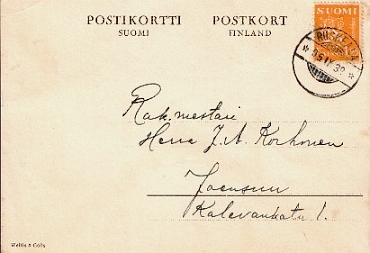 POSTIKORTTI POSTKORT
SUOMI FINLAND
SUOMI
Rak.mestari
Herra J.A. Korhonen
Joensuu
Kalevankatu 1.
Weilin & Göös